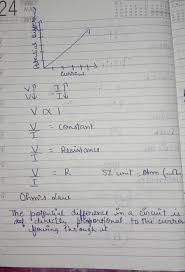 24
Potential difference
Current
V↑ I↑
V↓ I↓
V ∝ I
V/I = Constant
V/I = Resistance
V/I = R SI unit Ohm (Ω)
Ohm's Law
The potential difference in a circuit is
directly proportional to the current
flowing through it